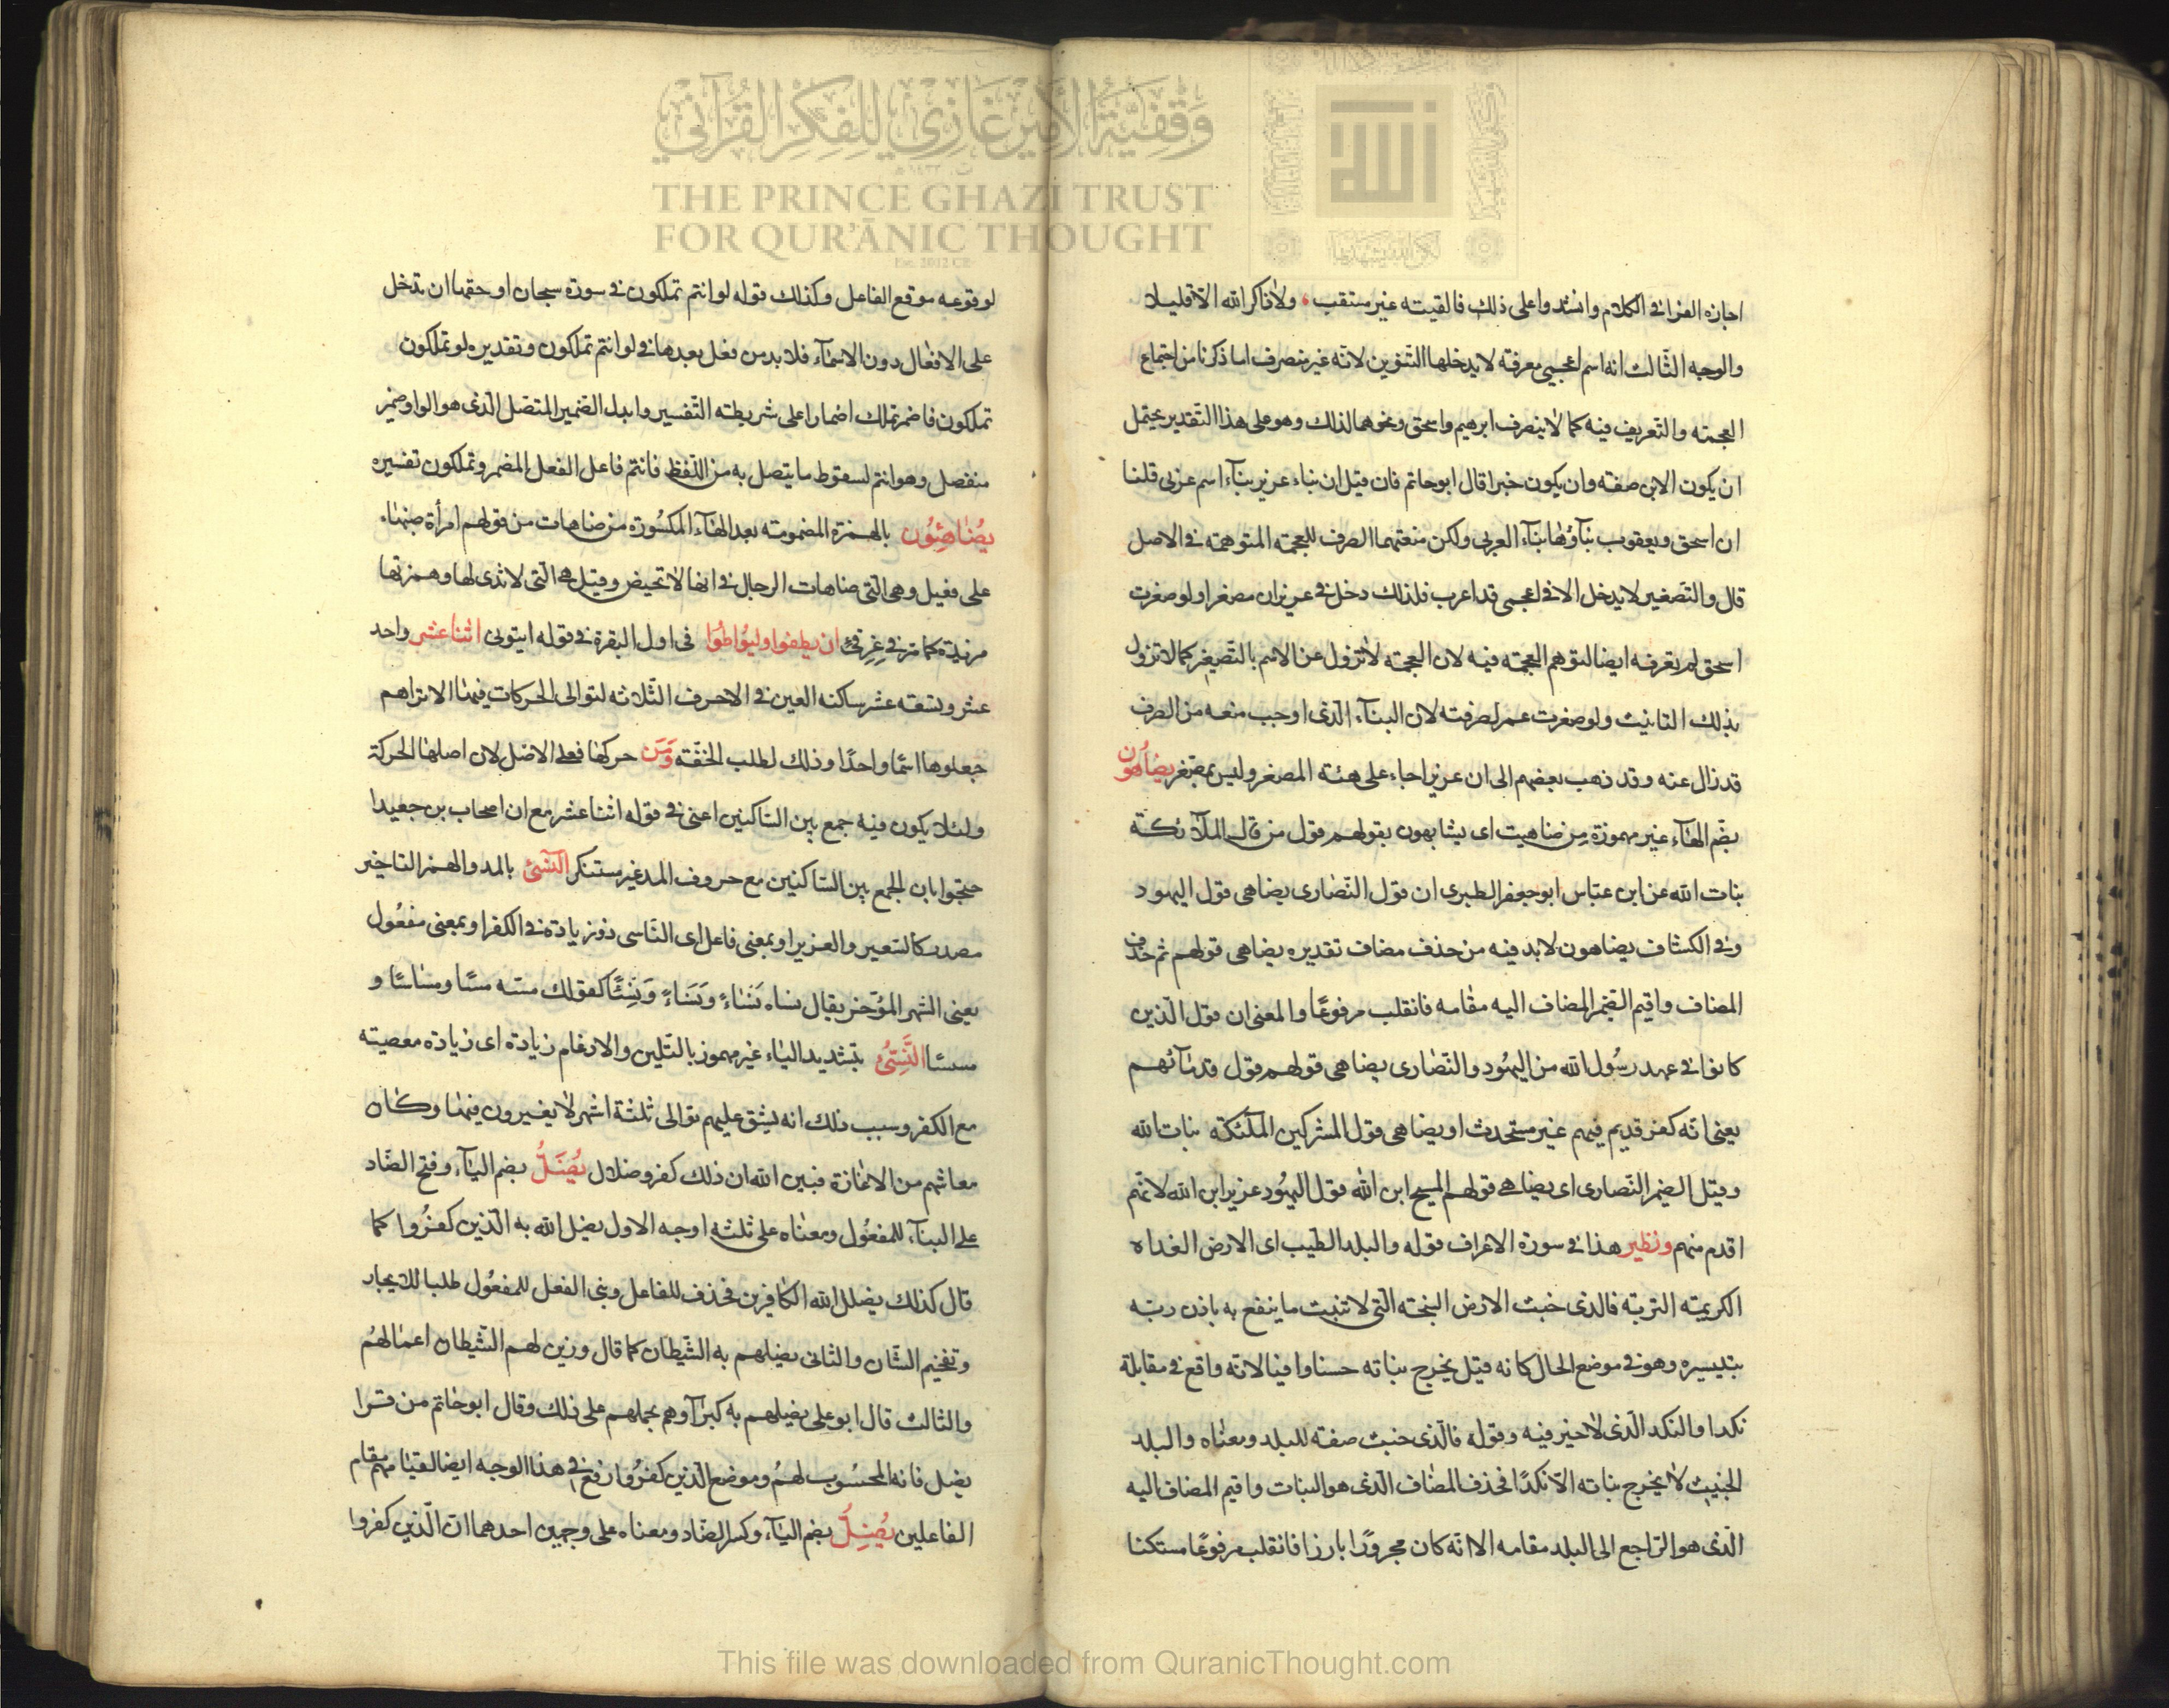 وَقْفِيَّةُ الأَمِيرِ غَازِي لِلْفِكْرِ القُرْآنِي
THE PRINCE GHAZI TRUST
FOR QUR'ĀNIC THOUGHT
Est. 2012 CE
الله
اجازه الفرا في الكلام وانشدوا على ذلك فالفيته غير مستعتب ولا ذاكر الله الا قليلا
والوجه الثالث انه اسم اعجمي معرفة لا يدخلها التنوين لانه غير منصرف لما ذكرنا من اجتماع
العجمة والتعريف فيه كما لا ينصرف ابرهيم واسحق ونحوهما لذلك وهو على هذا التقدير يحتمل
ان يكون الابن صفة وان يكون خبرا قال ابو حاتم فان قيل ان بناء عزير بناء اسم عربي قلنا
ان اسحق ويعقوب بناؤها بناء العربي ولكن منعتهما الصرف للعجمة المتوهمة في الاصل
قال والتصغير لا يدخل الا في اعجمي قد اعرب فلذلك دخل في عزيران مصغرا ولو صغرت
اسحق لم تعرفه ايضا لتوهم العجمة فيه لان العجمة لا تزول عن الاسم بالتصغير كما لا تزول
بذلك التانيث ولو صغرت عمر لصرفته لان البناء الذي اوجب منعه من الصرف
قد زال عنه وقد ذهب بعضهم الى ان عزيرا جاء على هيئة المصغر وليس بمصغر يضاهون
بضم الهاء غير مهموزة من ضاهيت اى يشابهون بقولهم قول من قال الملآئكة
بنات الله عن ابن عباس ابو جعفر الطبرى ان قول النصارى يضاهى قول اليهود
وفي الكشاف يضاهون لا بد فيه من حذف مضاف تقديره يضاهى قولهم ثم حذف
المضاف واقيم الضمير المضاف اليه مقامه فانقلب مرفوعًا والمعنى ان قول الذين
كانوا في عهد رسُول الله من اليهُود والنصارى يضاهى قولهم قول قدمآئهم
يعنى انه كفر قديم فيهم غير مستحدث او يضاهى قول المشركين الملئكة بنات الله
وقيل الضمير للنصارى اى يضاهى قولهم المسيح ابن الله قول اليهُود عزير ابن الله لانهم
اقدم منهم ونظير هذا في سورة الاعراف قوله والبلد الطيب اى الارض الغداه
الكريمة التربة فالذى خبث الارض السبخة التى لا تنبت ما ينفع به باذن ربه
بتيسيره وهو في موضع الحال كانه قيل يخرج نباته حسنا وافيا لانه واقع في مقابلة
نكدا والنكد الذى لا خير فيه وقوله فالذى خبث صفة للبلد ومعناه والبلد
الخبيث لا يخرج نباته الا نكدًا فحذف المضاف الذى هو النبات واقيم المضاف اليه
الذى هو الراجع الى البلد مقامه الا انه كان مجرورًا بارزا فانقلب مرفوعًا مستكنا
لوقوعه موقع الفاعل وكذلك قوله لو انتم تملكون في سورة سبحان لو حقها ان تدخل
على الافعال دون الاسمآء فلا بد من فعل بعدها في لو انتم تملكون وتقديره لو تملكون
تملكون فاضمر تملك اضمارا على شريطة التفسير وابدل الضمير المتصل الذى هو الواو ضمير
منفصل وهو انتم لسقوط ما يتصل به من اللفظ فانتم فاعل الفعل المضمر وتملكون تفسيره
يُضَاهِئُون بالهمزة المضمومة بعد الهاء المكسُورة من ضاهات من قولهم امرأة ضهياء
على فعيل وهى التى ضاهات الرجال في انها لا تحيض وقيل هى التى لا ثدى لها وهمزتها
مزيدة كما في غرقئ ان يطفوا وليُواطئوا في اول البقرة في قوله انبئونى اثنا عشر واحد
عشر وتسعة عشر ساكنة العين في الاحرف الثلاثة لتوالى الحركات فيها الا تراهم
جعلوها اسمًا واحدًا وذلك لطلب الخفة وَمَن حركها فعلى الاصل لان اصلها الحركة
ولئلا يكون فيه جمع بين الساكنين اعنى في قوله اثنا عشر مع ان اصحاب بن جعيدا
حتجوا بان الجمع بين الساكنين مع حروف المد غير مستنكر النسئ بالمد والهمز التاخير
مصدر كالسعير والعزير او بمعنى فاعل اى الناسى ذو زيادة في الكفر او بمعنى مفعُول
يعنى الشهر المؤخر يقال نساه نَسْاءً ونَسَاءً ونَسِئًا كقولك مسه مسًّا ومساسًا و
مسسًا النَّسِىُّ بتشديد الياء غير مهموز بالتليين والادغام زيادة اى زيادة معصية
مع الكفر وسبب ذلك انه يشق عليهم توالى ثلثة اشهر لا يغيرون فيها وكان
معاشهم من الاغارة فبين الله ان ذلك كفر وضلال يُضَلُّ بضم اليآء وفتح الضاد
على البنآء للمفعُول ومعناه على ثلثة اوجه الاول يضل الله به الذين كفرُوا كما
قال كذلك يضلل الله الكافرين فحذف للفاعل وبنى الفعل للمفعُول طلبا للايجاز
وتفخيم الشان والثانى يضلهم به الشيطان كما قال وزين لهم الشيطان اعمالهمُ
والثالث قال ابو على يضلهم به كبرآوهم بحملهم على ذلك وقال ابو حاتم من قرا
يضل فانه المحسُوب لهمُ وموضع الذين كفرُوا رفع في هذا الوجه ايضا لقيامهم مقام
الفاعلين يُضِلُّ بضم اليآء وكسر الضاد ومعناه على وجهين احدهما ان الذين كفروا
This file was downloaded from QuranicThought.com